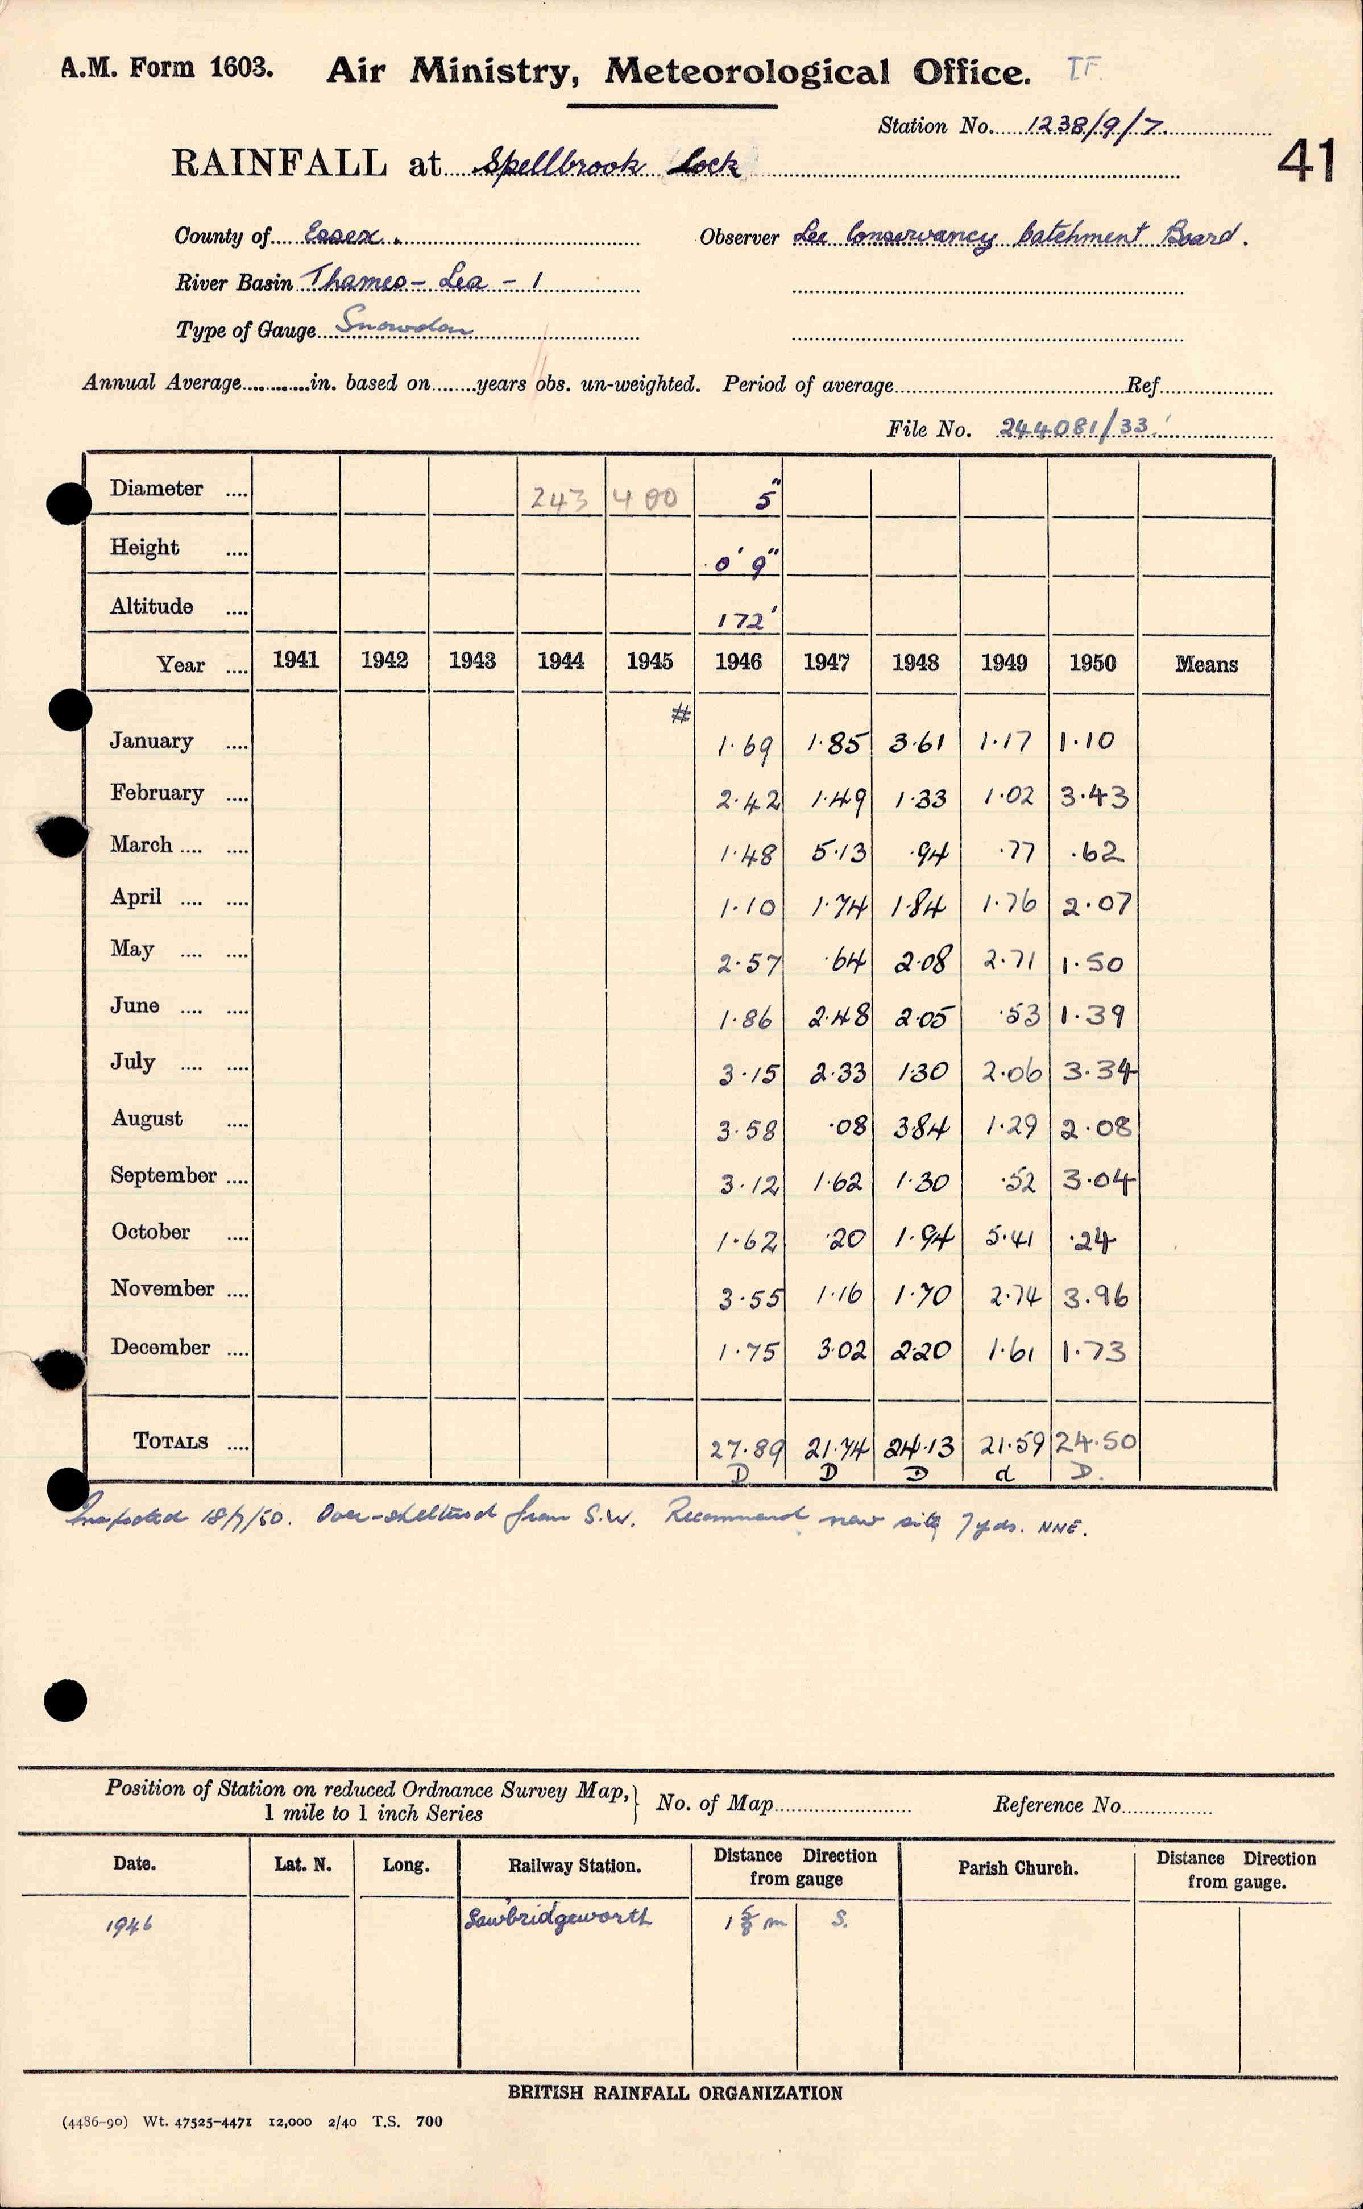 A.M. Form 1603. Air Ministry, Meteorological Office. TF
Station No. 1238/9/7
41
RAINFALL at Spellbrook Lock
County of Essex. Observer Lee Conservancy Catchment Board.
River Basin Thames - Lea - 1
Type of Gauge Snowdon
Annual Average............in. based on........years obs. un-weighted. Period of average.................... Ref....................
File No. 244081/33
Diameter .... 243 400 5"
Height .... 0' 9"
Altitude .... 172'
Year .... 1941 1942 1943 1944 1945 1946 1947 1948 1949 1950 Means
#
January .... 1.69 1.85 3.61 1.17 1.10
February .... 2.42 1.49 1.33 1.02 3.43
March .... .... 1.48 5.13 .94 .77 .62
April .... .... 1.10 1.74 1.84 1.76 2.07
May .... .... 2.57 .64 2.08 2.71 1.50
June .... .... 1.86 2.48 2.05 .53 1.39
July .... .... 3.15 2.33 1.30 2.06 3.34
August .... 3.58 .08 3.84 1.29 2.08
September .... 3.12 1.62 1.30 .52 3.04
October .... 1.62 .20 1.94 5.41 .24
November .... 3.55 1.16 1.70 2.74 3.96
December .... 1.75 3.02 2.20 1.61 1.73
TOTALS .... 27.89 21.74 24.13 21.59 24.50
D D D d D.
Inspected 18/7/50. Over-sheltered from S.W. Recommend new site 7 yds. NNE.
Position of Station on reduced Ordnance Survey Map, } No. of Map........................ Reference No................
1 mile to 1 inch Series
Date. Lat. N. Long. Railway Station. Distance Direction from gauge Parish Church. Distance Direction from gauge.
1946 Sawbridgeworth 1 5/8 m S.
BRITISH RAINFALL ORGANIZATION
(4486-90) Wt. 47525-4471 12,000 2/40 T.S. 700